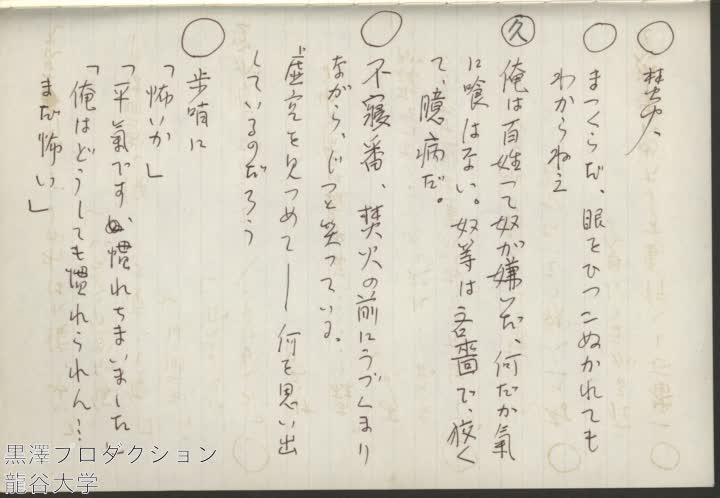 ○ 焚火、
○ まつくらだ、眼をひつこぬかれても
わからねえ
久 俺は百姓って奴が嫌いだ、何だか気
に喰はない。奴等は吝嗇で、狡く
て、臆病だ。
○ 不寝番、焚火の前にうづくまり
ながら、じつと笑っている。
虚空を見つめて――何を思い出
しているのだろう
○ 歩哨に
「怖いか」
「平気です 慣れちまいました」
「俺はどうしても慣れられん…
まだ怖い」
黒澤プロダクション
龍谷大学